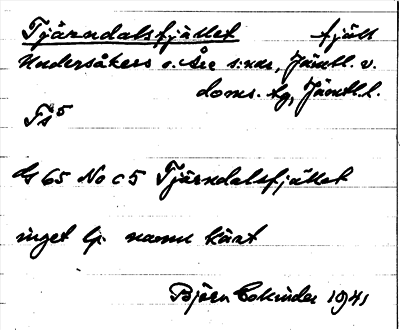 Tjärndalsfjället fjäll
Undersåkers o. Åre s:nar, Jämtl. v.
doms. tg, Jämtl. l.
Fs 5
G 65 No c 5 Tjärndalsfjället
inget lp. namn känt
Björn Collinder 1941